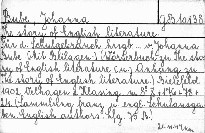 Bube, Johanna
The story of English literature
Für d. Schulgebrauch hrsg. v. Johanna
Bube (Mit Beilagen:) Wörterbuch zu The sto-
ry of English literature (u.:) Anhang zu
The story of English literature.) Bielefeld
1902, Velhagen & Klasing. 8°
(= Sammlung franz. u. engl. Schulausga-
ben. English authors. Lfg. 75 B.)